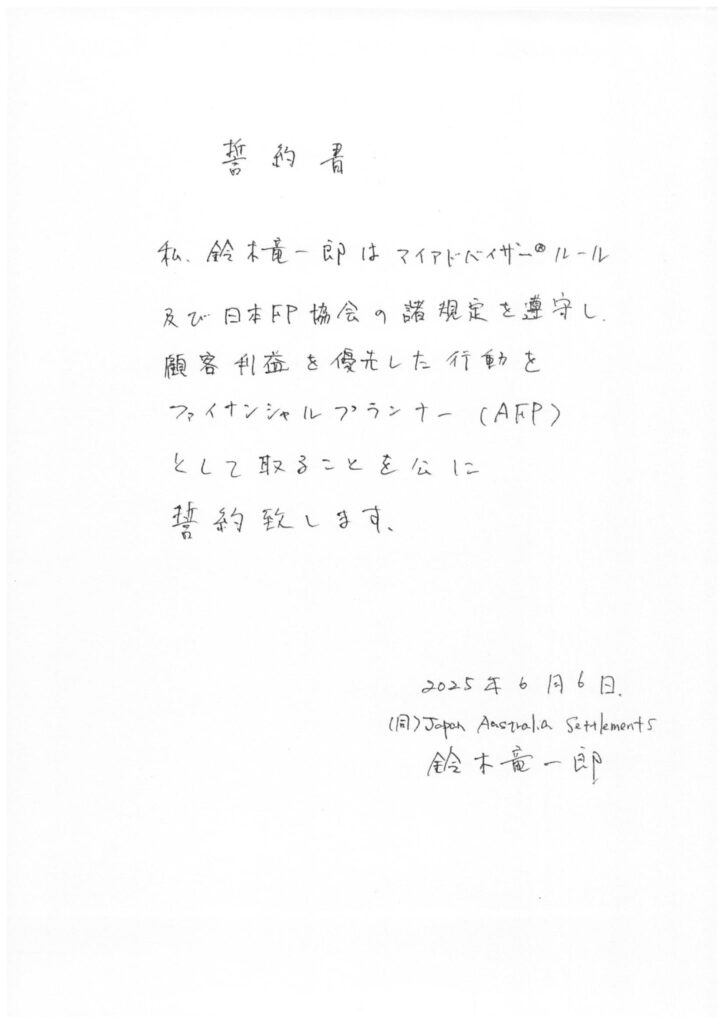 誓約書
私、鈴木竜一郎はマイアドバイザー®ルール
及び日本FP協会の諸規定を遵守し、
顧客利益を優先した行動を
ファイナンシャルプランナー(AFP)
として取ることを公に
誓約致します、
2025年6月6日.
(同)Japan Australia Settlements
鈴木竜一郎